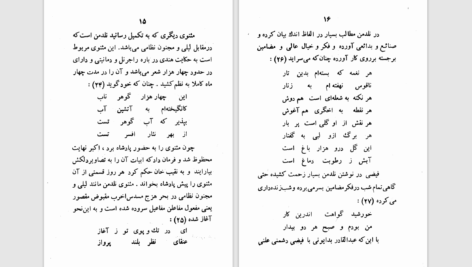 ۱۵
مثنوی دیگری که به تکمیل رسانید نلدمن است که
درمقابل لیلی و مجنون نظامی می‌باشد. این مثنوی مربوط
است به حکایت هندی در باره راجرنل و رمانینی و دارای
در حدود چهار هزار شعر می‌باشد و آن را در مدت چهار
ماه کاملا به نظم کشید. چنان که خود گوید (۲۴)
این چهار هزار گوهر ناب
کانگیخته‌ام به آتشین آب
بپذیر که آب گوهر تست
از بهر نثار افسر تست
چون مثنوی را به حضور پادشاه برد، اکبر نهایت
محظوظ شد و فرمان داد که ابیات آن را به تصاویر دلکش
بیارایند و به نقیب خان حکم کرد هر روز قسمتی از آن
مثنوی را پیش پادشاه بخواند. مثنوی نلدمن مانند لیلی و
مجنون نظامی در بحر هزج مسدس اخرب مقبوض مقصور
یعنی مفعول مفاعلن مفاعیل سروده شده است و به این‌نحو
آغاز شده (۲۵)
ای در تك و پوی تو ز آغاز
عنقای نظر بلند پرواز
۱۶
در نلدمن مطالب بسیار در الفاظ اندك بیان کرده و
صنائع و بدائعی آورده و فکر و خیال عالی و مضامین
برجسته بروی کار آورده چنان که می‌سراید (۲۶)
هر نغمه که بسته‌ام بدین تار
ناقوس نهفته‌ام به زنار
هر نکته به شعله‌ای است هم دوش
هر نقطه به اخگری هم آغوش
هر نقش از او گلی است پر بار
هر برگ ازو لبی به گفتار
این گل رو هزار باغ است
آبش ز رطوبت دماغ است
فیضی در نوشتن نلدمن بسیار زحمت کشیده حتی
گاهی تمام شب درفکر مضامین بسرمی‌برده وشب زنده‌داری
می‌کرده (۲۷)
خورشید گواهست اندرین کار
من بودم و صبح هر دو بیدار
با این که عبدالقادر بدایونی با فیضی دشمنی علنی